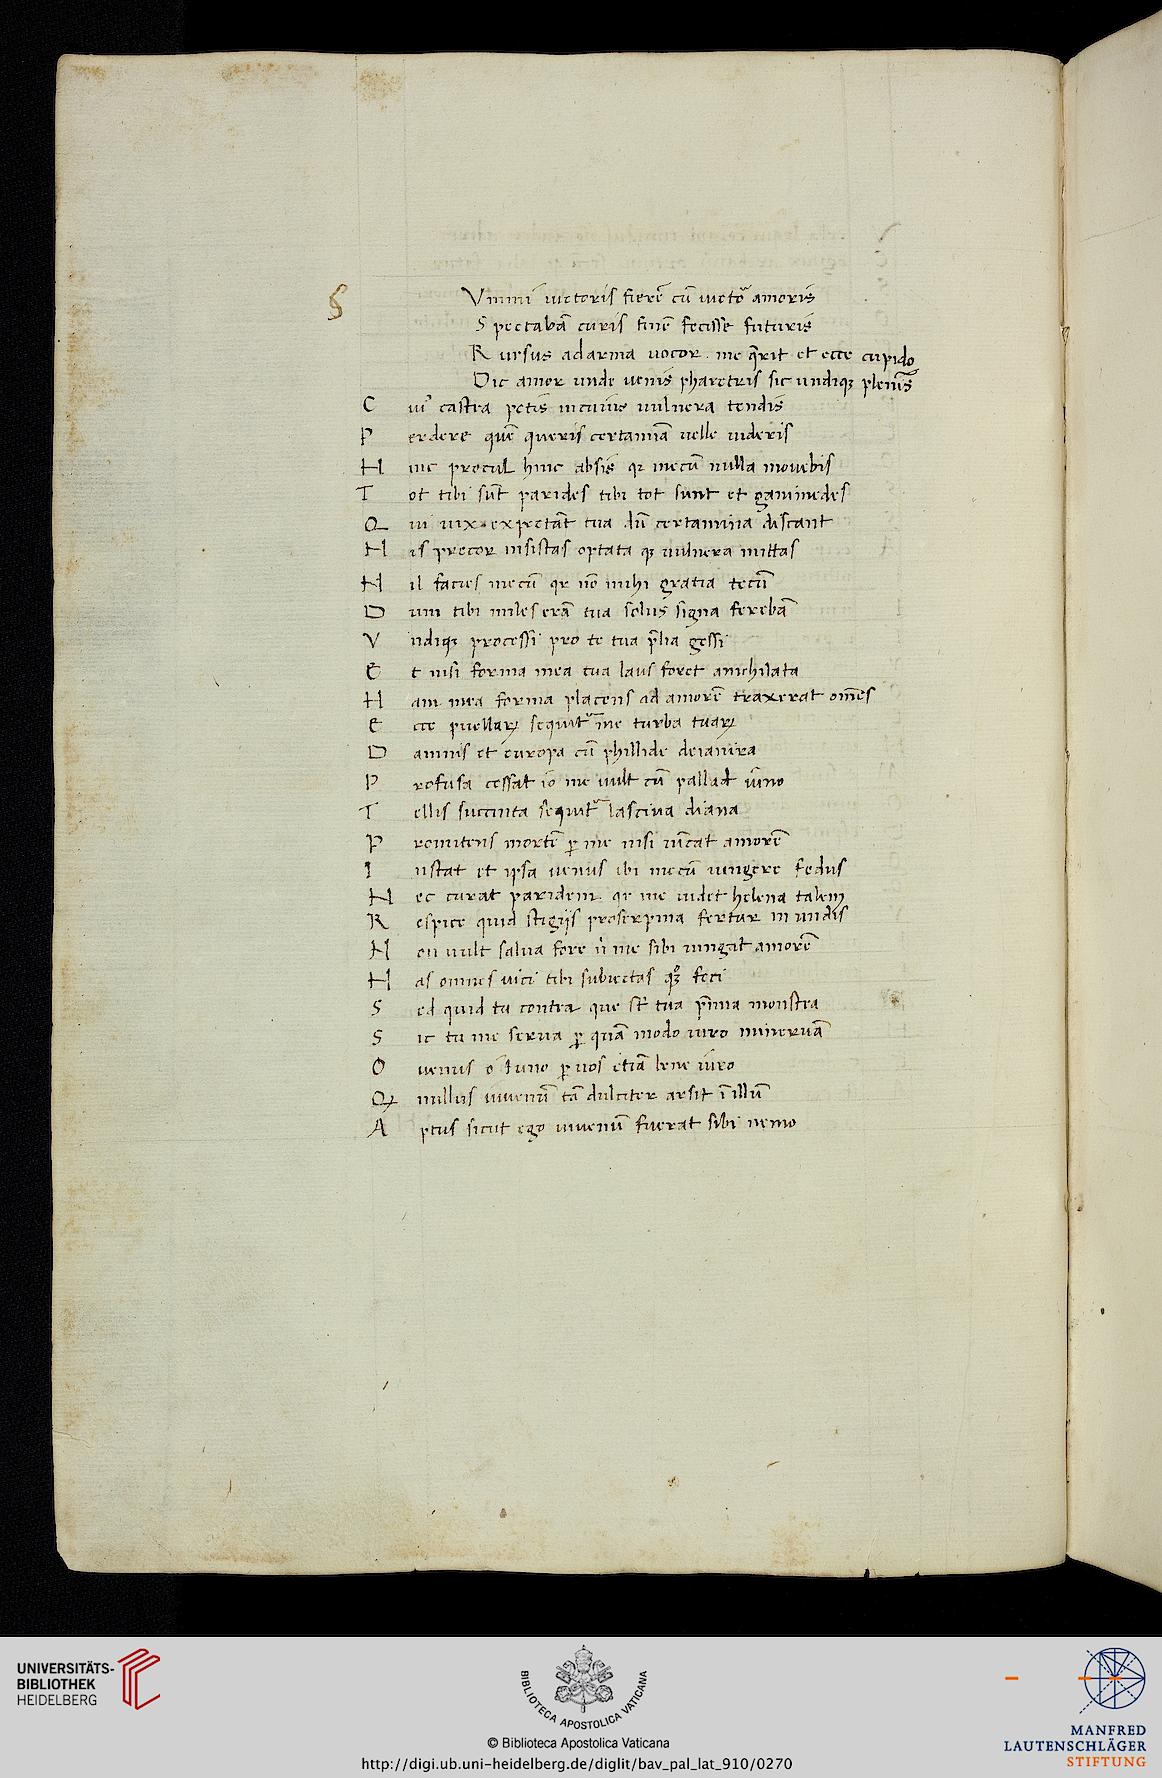 s Vmmi uictoris fierē cū uictoʳ amoris
S pectabā curis finē fecisse futuris
R ursus ad arma uocor . me q̄rit et ecce cupido
Dic amor unde uenis pharetris sic undiqꝫ plenis
C uiꝰ castra petis in cuius uulnera tendis
P erdere quē queris certaminā uelle uideris
H inc procul hinc absis qr mecū nulla mouebis
T ot tibi sūt parides tibi tot sunt et ganimedes
Q ui uix expectāt tua dū certamina discant
H is precor insistas optata qꝫ uulnera mittas
N il facies mecū qr nō mihi gratia tecū
D um tibi miles erā tua solus signa ferebā
V ndiqꝫ processi pro te tua p̄lia gessi
E t nisi forma mea tua laus foret anichilata
N am mea forma placens ad amorē traxerat om̄es
E cce puellaꝝ sequitʳ me turba tuaꝝ
D amnis et europa cū phillide deianira
P rofusa cessat io me uult cū pallade iūno
T ellis succinta sequitʳ lasciua diana
P romittens mortē ꝑ me nisi iūcat amorē
I nstat et ipsa uenus ibi mecū iungere fedus
N ec curat paridem qr me uidet helena talem
R espice quid stigijs proserpina fertur in undis
N on uult salua fore n̄ me sibi iungat amorē
H as omnes uici tibi subiectas qꝫ feci
S ed quid tu contra que st̄ tua p̄mia monstra
S ic tu me serua ꝑ quā modo iuro mineruā
O uenus o iuno ꝑ uos etiā bene iūro
Q nullus iuuenū tā dulciter arsit ī illū
A ptus sicut ego iuuenū fuerat sibi nemo
UNIVERSITÄTS-
BIBLIOTHEK
HEIDELBERG
BIBLIOTECA APOSTOLICA VATICANA
© Biblioteca Apostolica Vaticana
http://digi.ub.uni-heidelberg.de/diglit/bav_pal_lat_910/0270
MANFRED
LAUTENSCHLÄGER
STIFTUNG